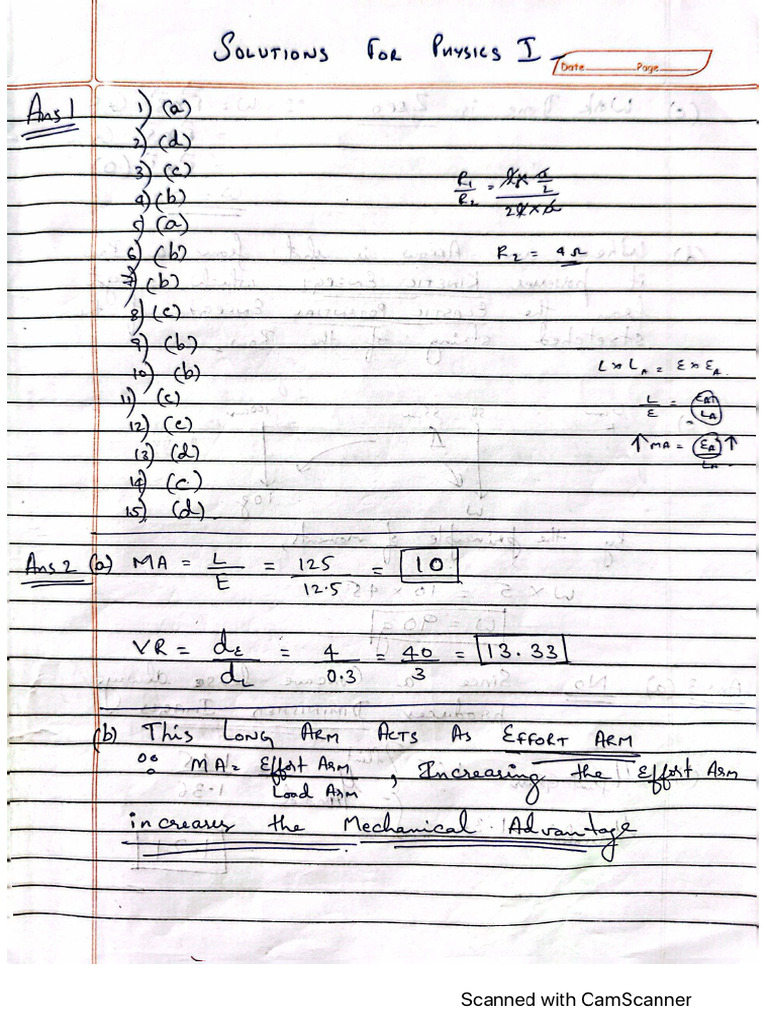 SOLUTIONS FOR PHYSICS I
Date Page
Ans 1
1) (a)
2) (d)
3) (c)
4) (b)
5) (a)
6) (b)
7) (b)
8) (c)
9) (b)
10) (b)
11) (c)
12) (c)
13) (d)
14) (c)
15) (d)
R1/R2 =
R2 = 4Ω
L × LA = E × EA
L/E = EA/LA
↑ MA = EA/LA ↑
Ans 2 (a) MA = L/E = 125/12.5 = 10
VR = dE/dL = 4/0.3 = 40/3 = 13.33
(b) THIS LONG ARM ACTS AS EFFORT ARM
∵ MA = Effort Arm/Load Arm, Increasing the Effort Arm
increases the Mechanical Advantage
Scanned with CamScanner